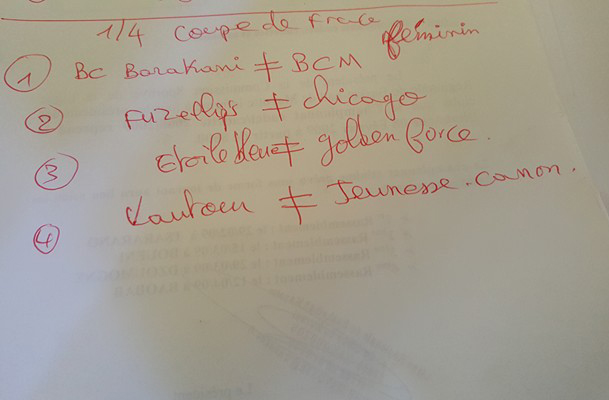 1/4 Coupe de France féminin
1 BC Barakani ≠ BCM
2 Fuz'ellips ≠ chicago
3 Etoile bleue ≠ golden force.
4 ≠ Jeunesse.canon.